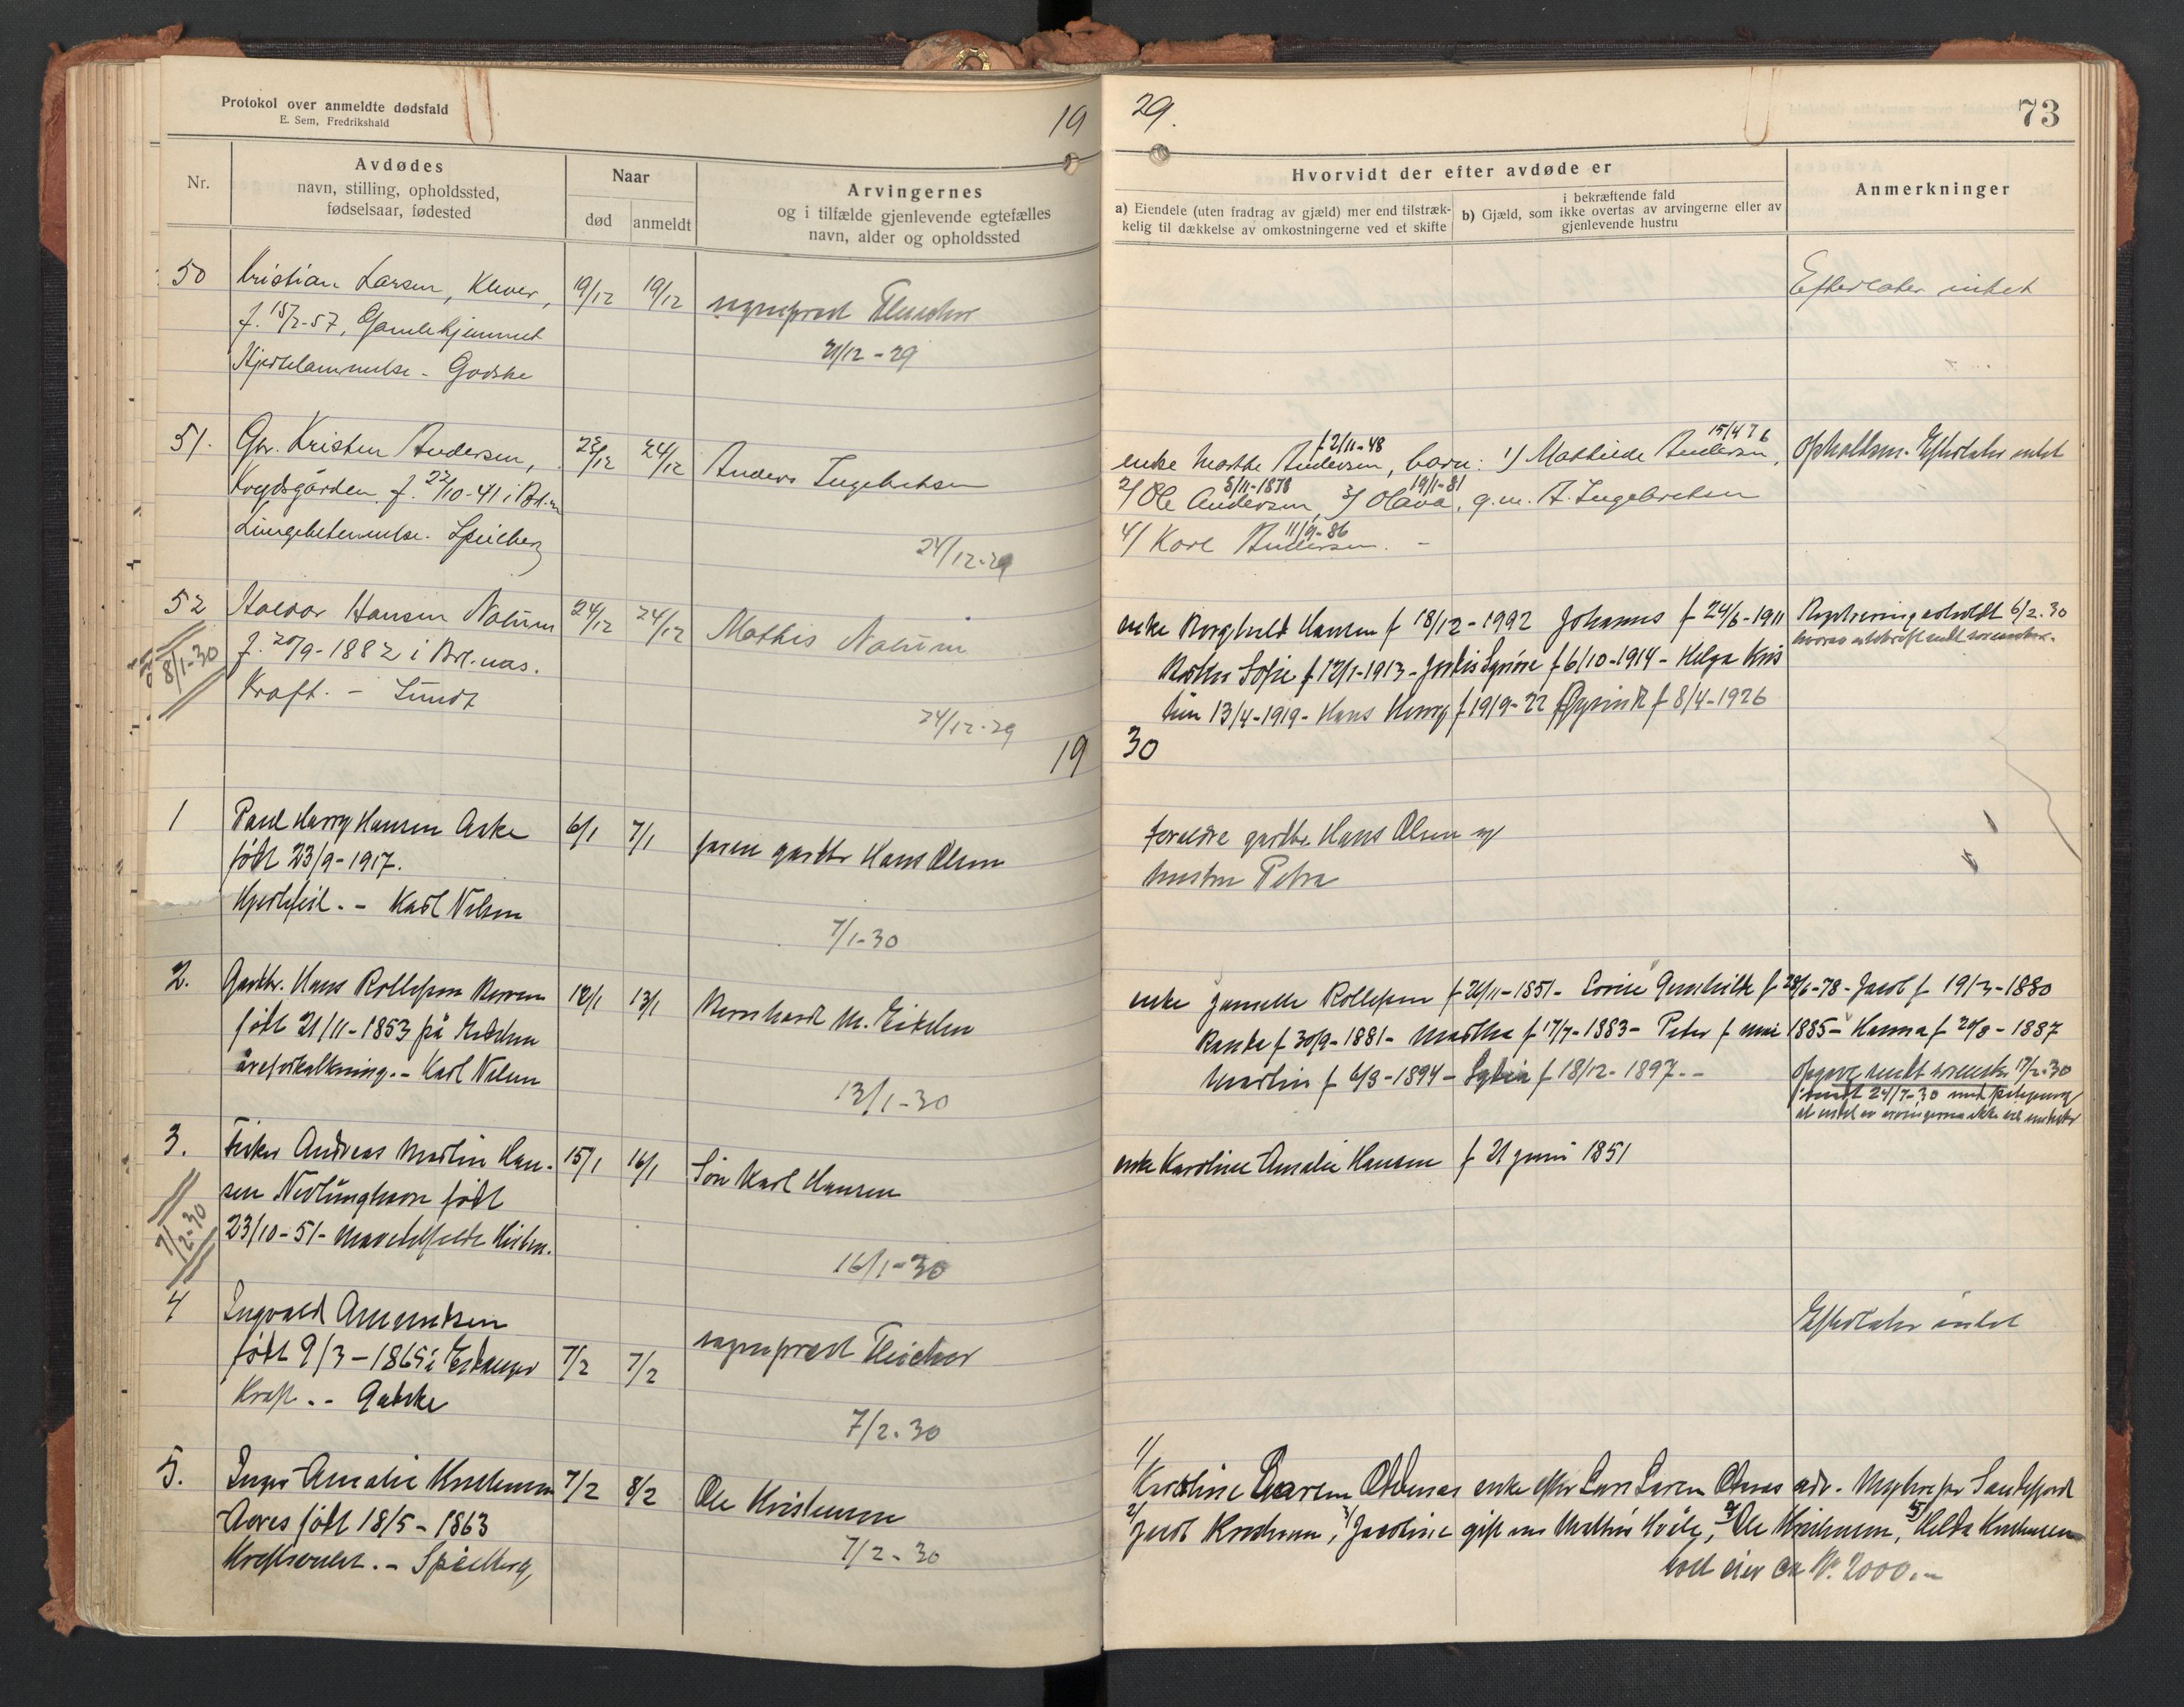 Protokol over anmeldte dødsfald
E. Sem, Fredrikshald
19
Nr.
Avdødes
navn, stilling, opholdssted,
fødselsaar, fødested
Naar
død
anmeldt
Arvingernes
og i tilfælde gjenlevende egtefælles
navn, alder og opholdssted
50
Kristian Larsen, Klever,
19/12
19/12
sogneprest Fleischer
f. 15/2-57, Gamlehjemmet
21/12-29
Hjertelammelse - Godske
51.
Gbr. Kristen Andersen,
22/12
24/12
Anders Ingebretsen
f. 22/10-41 i
Lungebetennelse. Spielberg
24/12-29
52
Halvor Hansen Nalum
24/12
24/12
Mathis Nalum
f. 20/9-1882 i Br.nas.
8/1-30
Kræft. - Lund
24/12-29
19
1
Paul Harry Hansen Aske
6/1
7/1
faren gardbr Hans Olsen
født 23/9-1917.
Hjertefeil. - Karl Nilsen
7/1-30
2.
Gardbr. Hans Rollefsen
12/1
13/1
Bernhard M. Eidden
født 21/11-1853 på
åreforkalkning. - Karl Nilsen
13/1-30
3.
Fisker Andreas Martin Han-
15/1
16/1
Søn Karl Hansen
sen Nevlunghavn født
23/10-51-
7/2-30
16/1-30
4
Ingvald Amundsen
født 9/3-1865 i Eidanger
7/2
7/2
sogneprest Fleischer
Kræft. - Gadske
7/2-30
5.
Inger Amalie Kristensen
7/2
8/2
Ole Kristensen
født 18/5-1863
7/2-30
- Spielberg
29.
73
Hvorvidt der efter avdøde er
a) Eiendele (uten fradrag av gjæld) mer end tilstræk-
kelig til dækkelse av omkostningerne ved et skifte
i bekræftende fald
b) Gjæld, som ikke overtas av arvingerne eller av
gjenlevende hustru
Anmerkninger
Efterlater intet
f 2/11-48
15/4 76
enke Marthe Andersen, barn: 1) Mathilde Andersen,
Efterlater intet
5/11-1878
19/1-81
2) Ole Andersen, 3) Olava, g.m. A. Ingebretsen
11/9-86
4) Karl Andersen. -
enke Borghild Hansen f 18/12-1992 Johannes f 24/6-1911
Registrering avholdt 6/2-30
Sofie f 12/1-1913- f 6/10-1914 - Helga Kris
tin 13/4-1919- Hans Henry f 19/9-22 Øyvind f 8/4-1926
30
foreldre gardbr. Hans Olsen og
hustru Petra
enke Rollefsen f 26/11-1851- Gunhilde f 28/6-78- Jacob f 19/3-1880
f 30/9-1881- Marthea f 17/7-1883- Peter f mai 1885- Hanna f 20/8-1887
Martin f 6/3-1894- f 18/12-1897.-
17/2-30
24/7-30
enke Karoline Amalie Hansen f 21 juni 1851
Efterlater intet
1/
Karoline Larsen enke efter Lars Larsen Sandefjord
2/ Jacob Kristensen, 3/ Jacobine gift m. Mathis 4/ Ole Kristensen, 5/ Helda Kristensen
boet eier ca kr. 2000.-